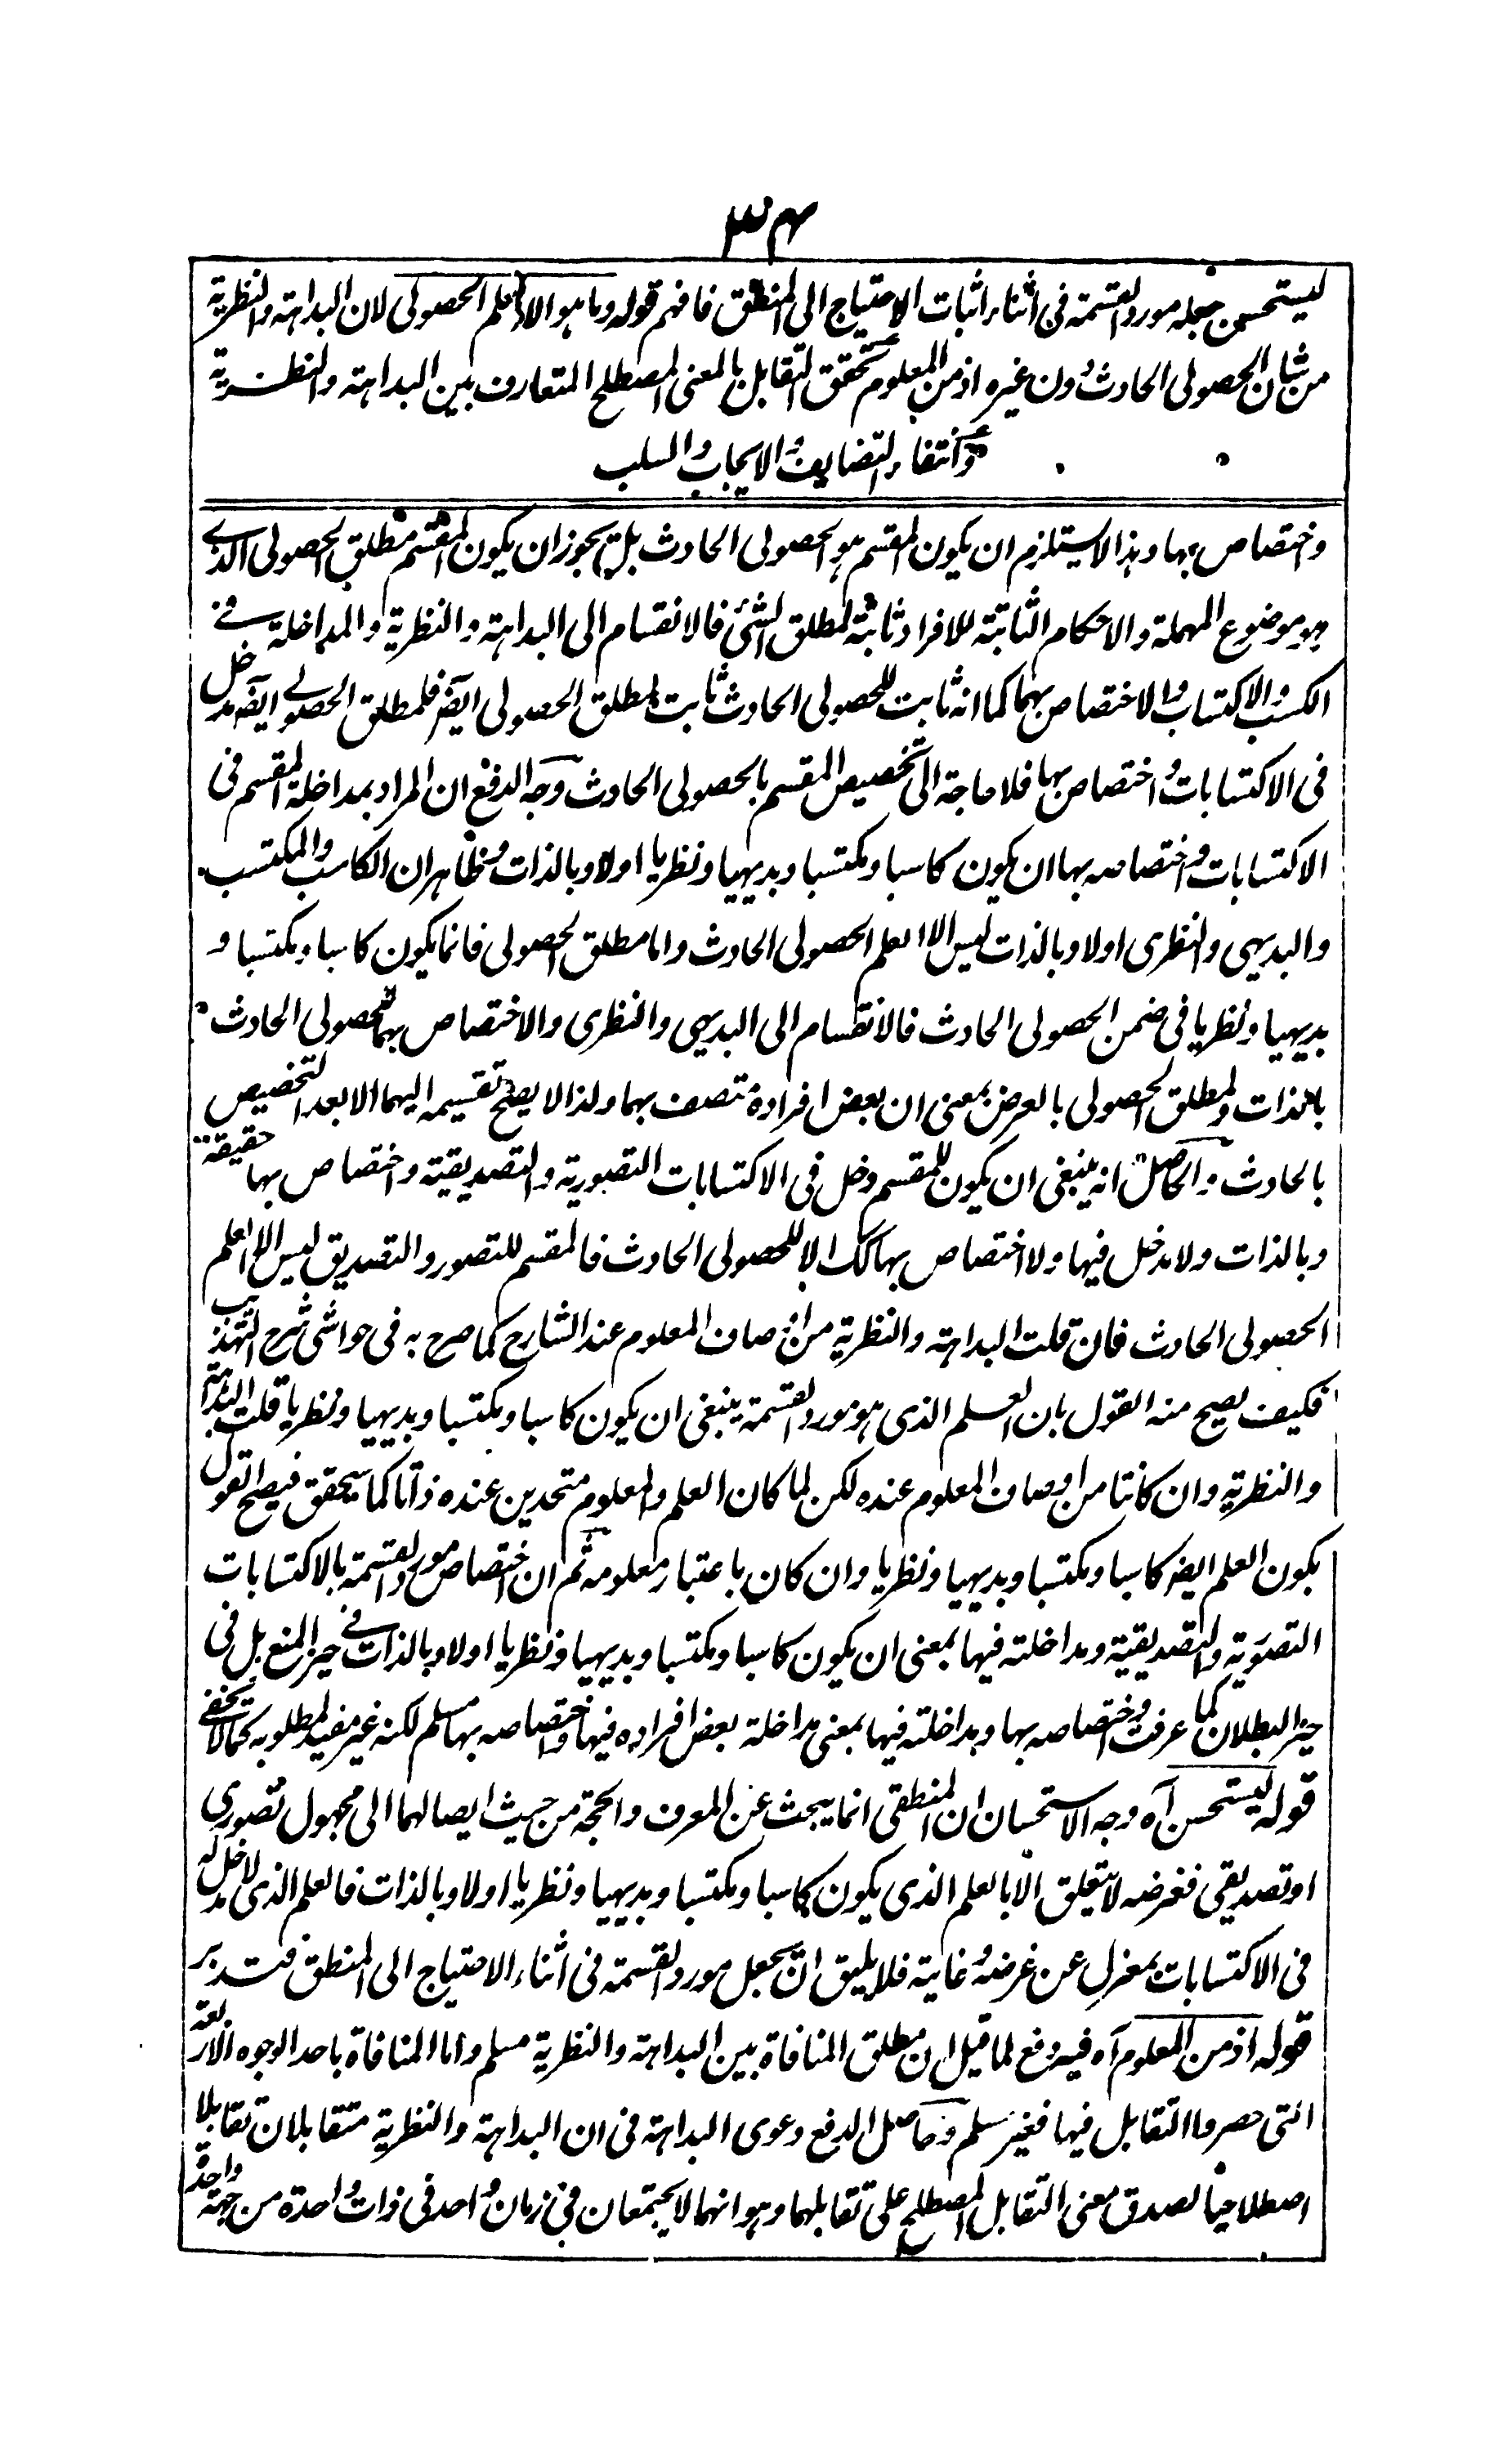 ٣٤
ليستحسن جعله مورد القسمة فى اثناء اثبات الاحتياج الى المنطق فافهم قوله وما هو الا العلم الحصولى لان البداهة والنظرية
من شان الحصولى الحادث دون غيره اذ من المعلوم تحقق التقابل بالمعنى المصطلح المتعارف بين البداهة والنظرية
وانتفاء التضايف والايجاب والسلب
واختصاص بها وهذا لا يستلزم ان يكون المقسم هو الحصولى الحادث بل يجوز ان يكون المقسم مطلق الحصولى الذى
هو موضوع المهملة والاحكام الثابتة للافراد ثابتة لمطلق الشئ فالانقسام الى البداهة والنظرية والمداخلة فى
الكسب والاكتساب والاختصاص بهما كما انه ثابت للحصولى الحادث ثابت لمطلق الحصولى ايضا فلمطلق الحصولى ايضا مدخل
فى الاكتسابات واختصاص بها فلا حاجة الى تخصيص المقسم بالحصولى الحادث وجه الدفع ان المراد بمداخلة المقسم فى
الاكتسابات واختصاصه بها ان يكون كاسبا ومكتسبا وبديهيا ونظريا اولا وبالذات وظاهر ان الكاسب والمكتسب
والبديهى والنظرى اولا وبالذات ليس الا العلم الحصولى الحادث واما مطلق الحصولى فانما يكون كاسبا ومكتسبا و
بديهيا ونظريا فى ضمن الحصولى الحادث فالانقسام الى البديهى والنظرى والاختصاص بهما للحصولى الحادث
بالذات ولمطلق الحصولى بالعرض بمعنى ان بعض افراده متصف بهما ولذا لا يصح تقسيمه اليهما الا بعد التخصيص
بالحادث والحاصل انه ينبغى ان يكون للمقسم دخل فى الاكتسابات التصورية والتصديقية واختصاص بها حقيقة
وبالذات ولا مدخل فيها ولا اختصاص بها كك الا للحصولى الحادث فالمقسم للتصور والتصديق ليس الا العلم
الحصولى الحادث فان قلت البداهة والنظرية من اوصاف المعلوم عند الشارح كما صرح به فى حواشى شرح التهذيب
فكيف يصح منه القول بان العلم الذى هو مورد القسمة ينبغى ان يكون كاسبا ومكتسبا وبديهيا ونظريا قلت البداهة
والنظرية وان كانتا من اوصاف المعلوم عنده لكن لما كان العلم والمعلوم متحدين عنده ذاتا كما سيحقق فيصح القول
بكون العلم ايضا كاسبا ومكتسبا وبديهيا ونظريا وان كان باعتبار معلومه ثم ان اختصاص مورد القسمة بالاكتسابات
التصورية والتصديقية ومداخلته فيها بمعنى ان يكون كاسبا ومكتسبا وبديهيا ونظريا اولا وبالذات فى حيز المنع بل فى
حيز البطلان كما عرفت واختصاصه بها ومداخلته فيها بمعنى مداخلة بعض افراده فيها واختصاصه بها مسلم لكنه غير مفيد لمطلوبه كما لا يخفى
قوله ليستحسن آه وجه الاستحسان ان المنطقى انما يبحث عن المعرف والحجة من حيث ايصالهما الى مجهول تصورى
او تصديقى فغرضه لا يتعلق الا بالعلم الذى يكون كاسبا ومكتسبا وبديهيا ونظريا اولا وبالذات فالعلم الذى لا مدخل له
فى الاكتسابات بمعزل عن غرضه وغايته فلا يليق ان يجعل مورد القسمة فى اثناء الاحتياج الى المنطق فتدبر
قوله اذ من المعلوم آه فيه دفع لما قيل ان مطلق المنافاة بين البداهة والنظرية مسلم واما المنافاة باحد الوجوه الاربعة
التى حصروا التقابل فيها فغير مسلم وحاصل الدفع دعوى البداهة فى ان البداهة والنظرية متقابلان تقابلا
اصطلاحيا لصدق معنى التقابل المصطلح على تقابلهما وهو انهما لا يجتمعان فى زمان واحد فى ذات واحدة من جهة واحدة